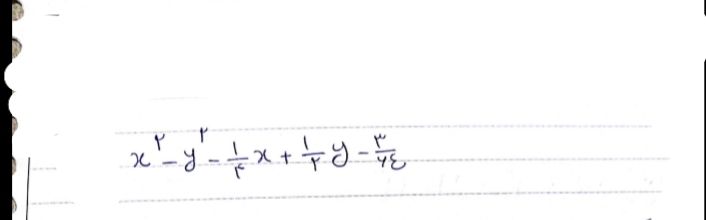 x^۲ - y^۲ - ۱/۴ x + ۱/۲ y - ۳/۶٤